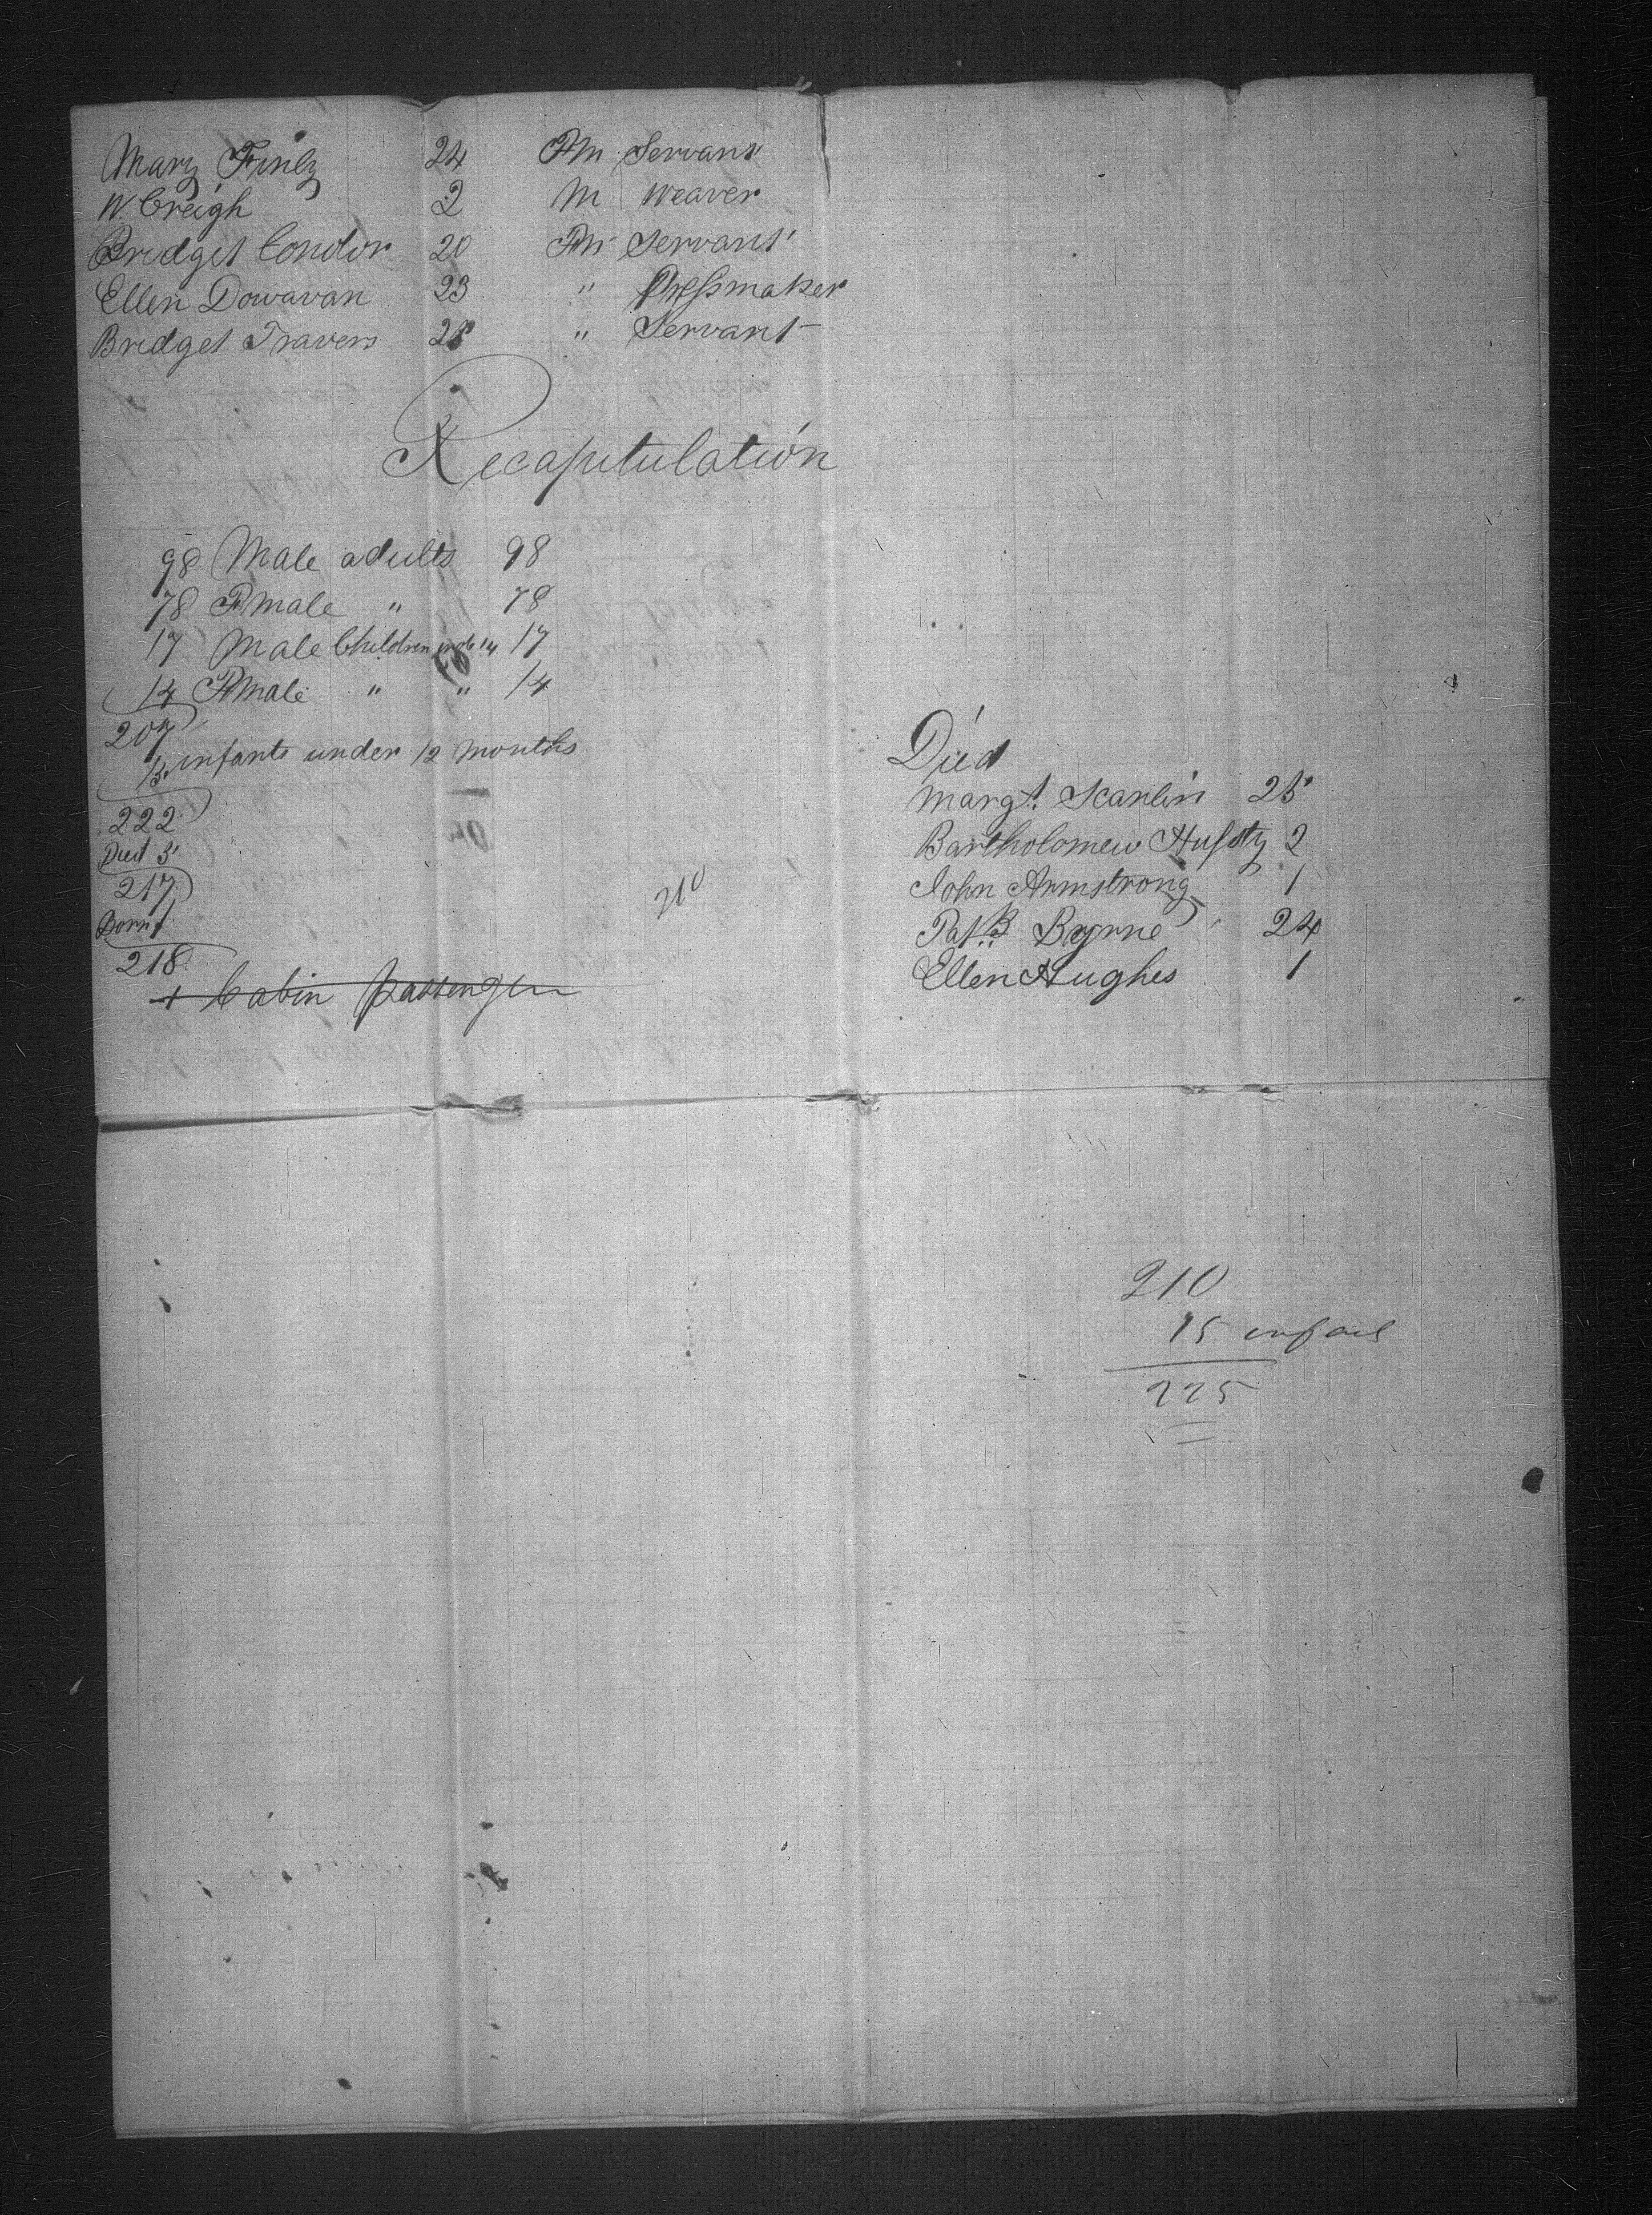 Mary Finly 24 Fm Servant
W. Creigh 2 M Weaver
Bridget Condor 20 Fm Servant
Ellen Dowavan 23 " Dressmaker
Bridget Travers 25 " Servant
Recapitulation
98 Male adults 98
78 Fmale " 78
17 Male Children under 14 17
14 Fmale " " 14
207
15 infants under 12 Months
222
Died 5
217
Born 1
218
1 Cabin passenger
210
Died
Margt. Scanlin 25
Bartholomew 2
John Armstrong 1
Patk Byrne 24
Ellen Hughes 1
210
15 infant
225